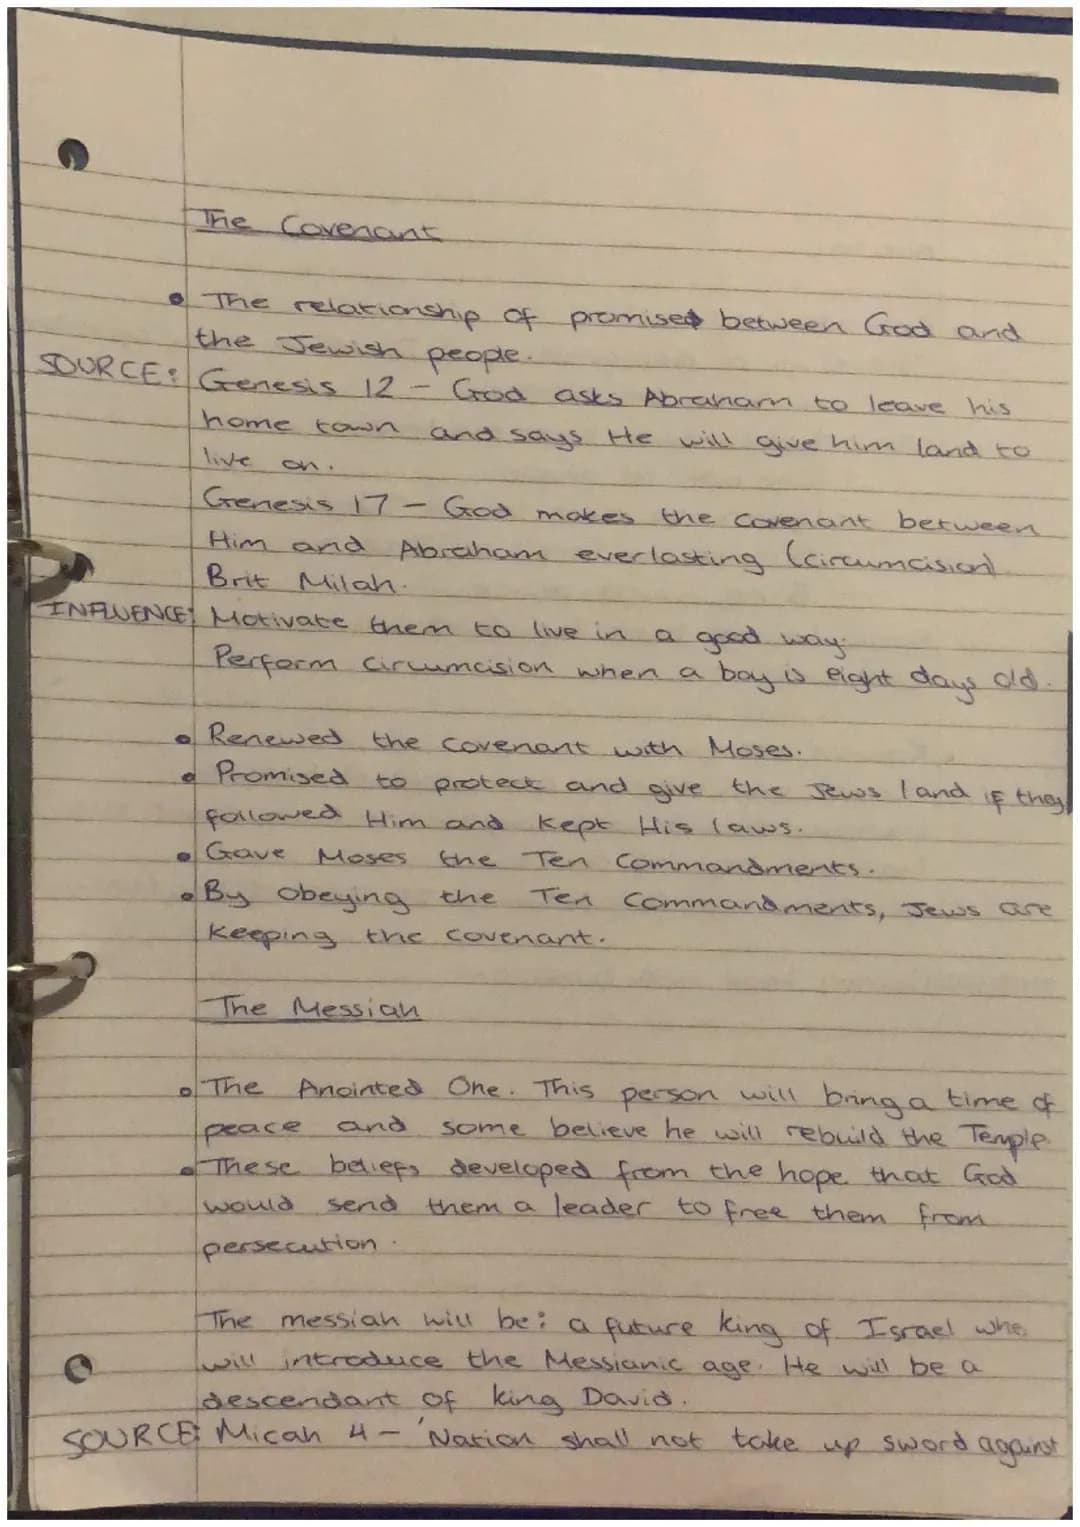 The Covenant
• The relationship of promised between God and
the Jewish people.
SOURCE: Genesis 12 - God asks Abraham to leave his
home town and says He will give him land to
live on.
Genesis 17 - God makes the covenant between
Him and Abraham everlasting (circumcision)
Brit Milah.
INFLUENCE: Motivate them to live in a good way.
Perform circumcision when a boy is eight days old.
• Renewed the covenant with Moses.
• Promised to protect and give the Jews land if they
followed Him and kept His laws.
• Gave Moses the Ten Commandments.
• By obeying the Ten Commandments, Jews are
keeping the covenant.
The Messiah
• The Anointed One. This person will bring a time of
peace and some believe he will rebuild the Temple
• These beliefs developed from the hope that God
would send them a leader to free them from
persecution.
The messiah will be: a future king of Israel who
will introduce the Messianic age. He will be a
descendant of king David.
SOURCE: Micah 4 - 'Nation shall not take up sword against